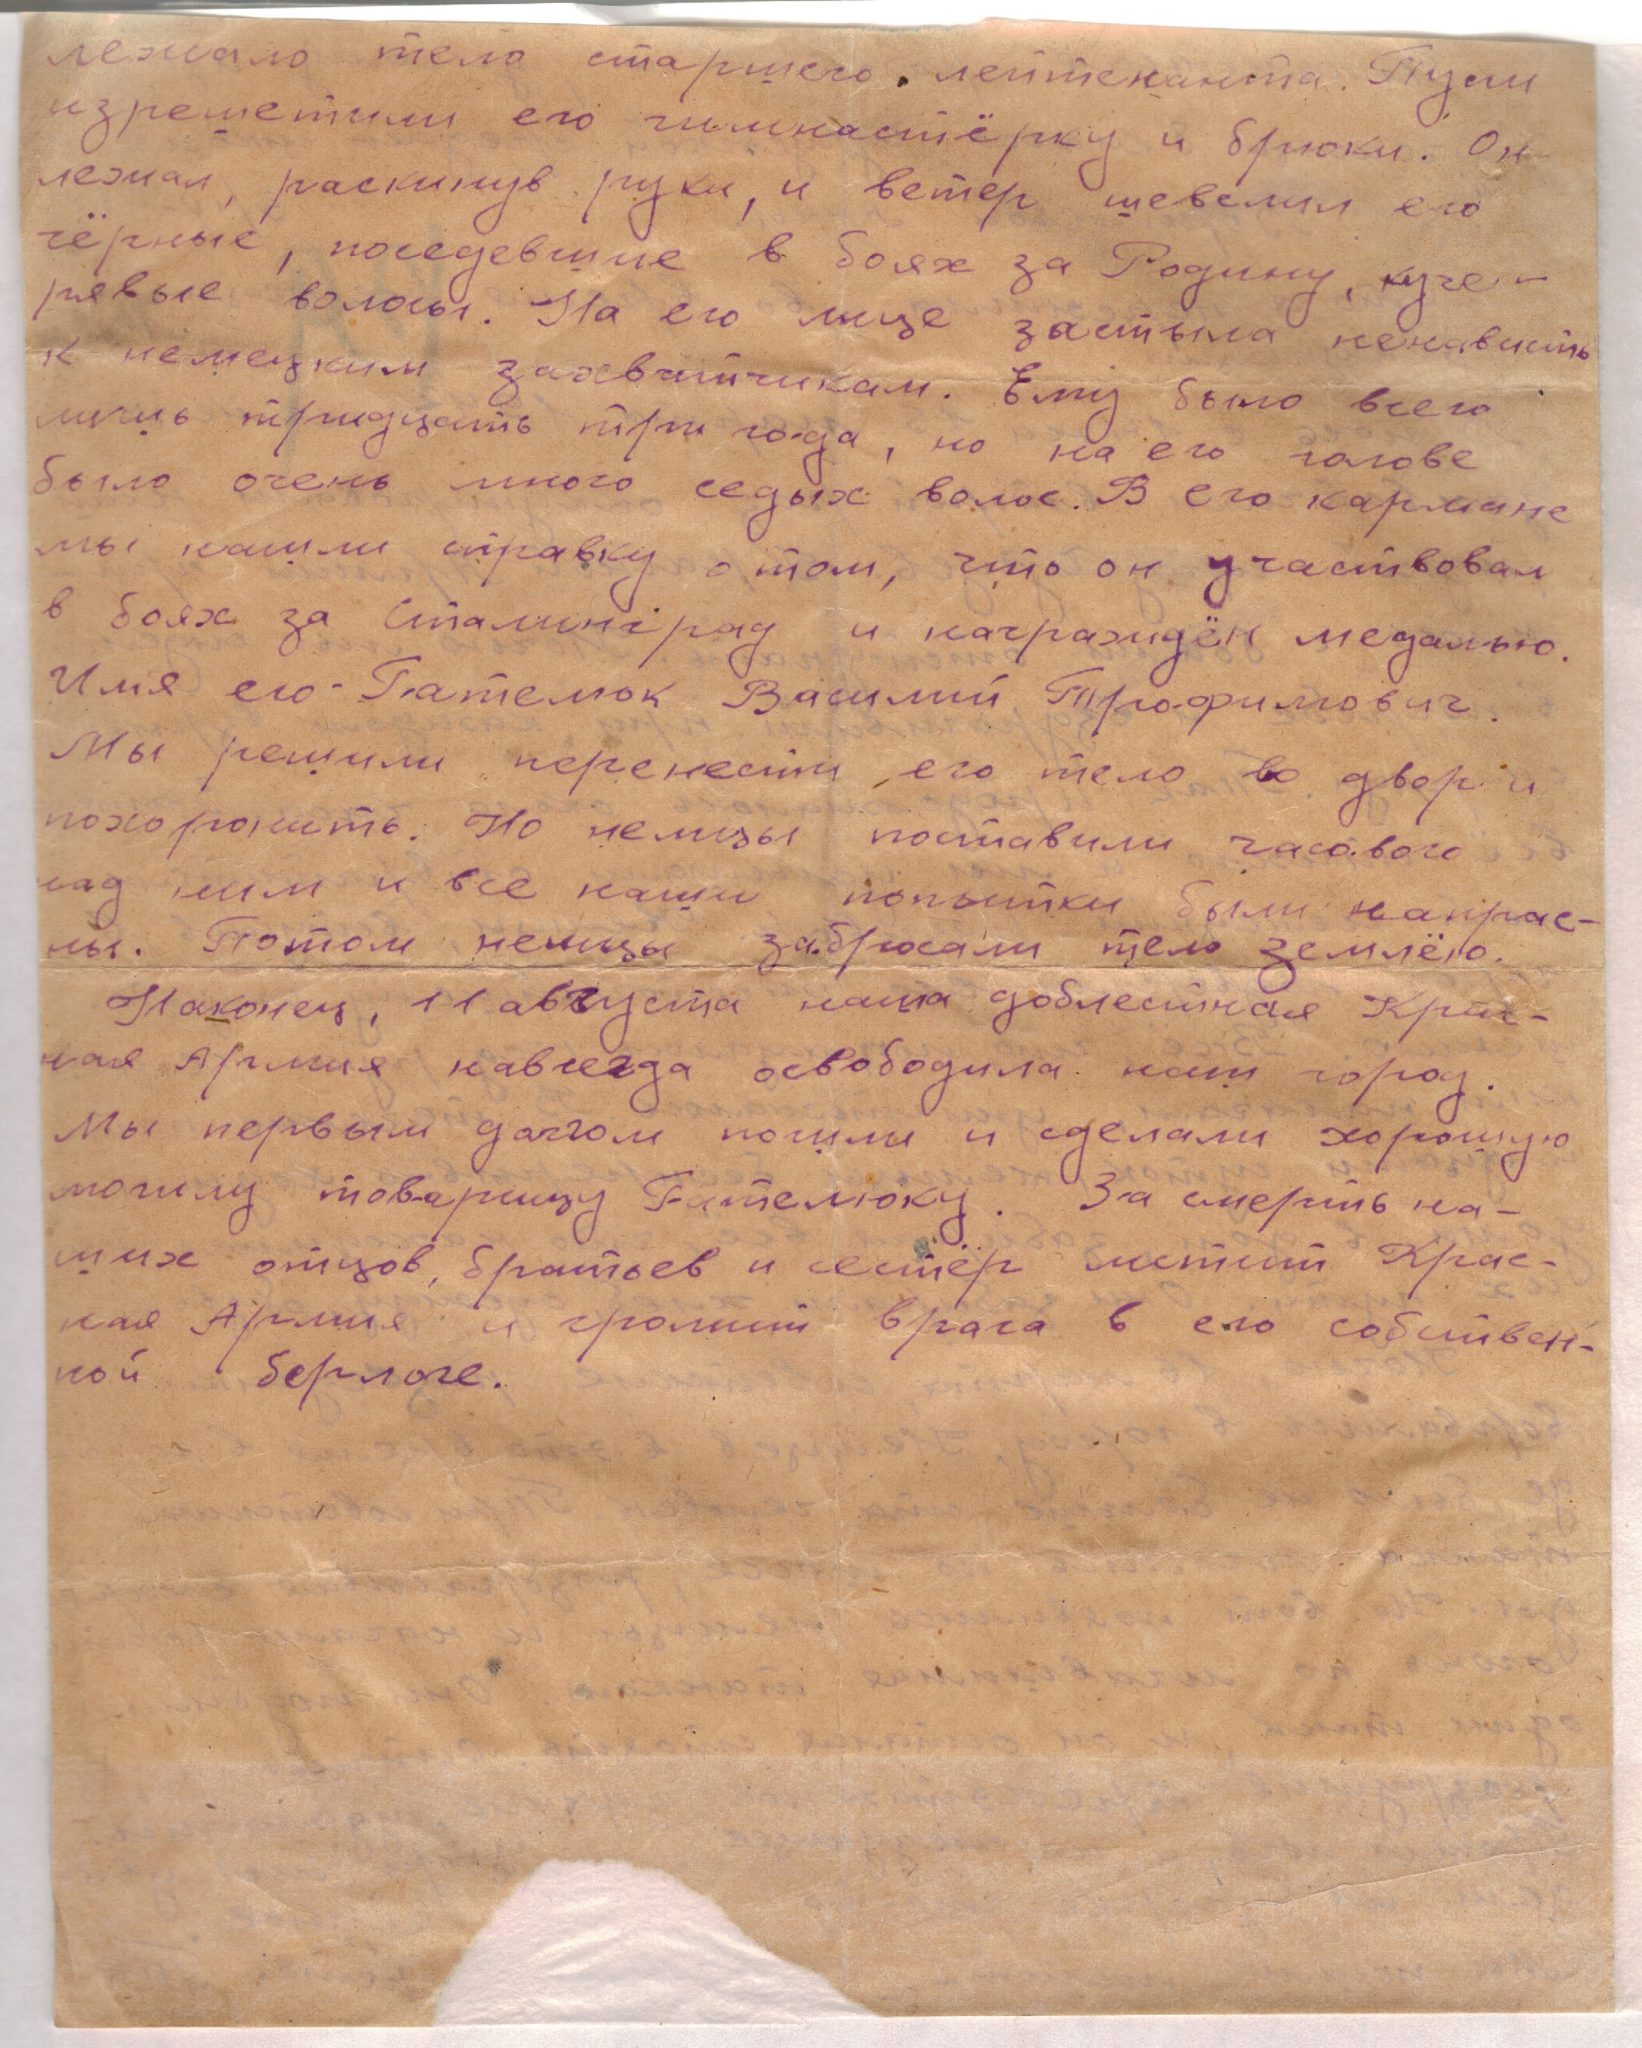 лежало тело старшего лейтенанта. Пули
изрешетили его гимнастёрку и брюки. Он
лежал, раскинув руки, и ветер шевелил его
чёрные, поседевшие в боях за Родину, куче-
рявые волосы. На его лице застыла ненависть
к немецким захватчикам. Ему было всего
лишь тридцать три года, но на его голове
было очень много седых волос. В его кармане
мы нашли справку о том, что он участвовал
в боях за Сталинград и награждён медалью.
Имя его - Гателюк Василий Трофимович.
Мы решили перенести его тело во двор и
похоронить. Но немцы поставили часового
над ним и все наши попытки были напрас-
ны. Потом немцы забросали тело землёю.
Наконец, 11 августа наша доблестная Крас-
ная Армия навсегда освободила наш город.
Мы первым долгом пошли и сделали хорошую
могилу товарищу Гателюку. За смерть на-
ших отцов, братьев и сестёр мстит Крас-
ная Армия и громит врага в его собствен-
ной берлоге.